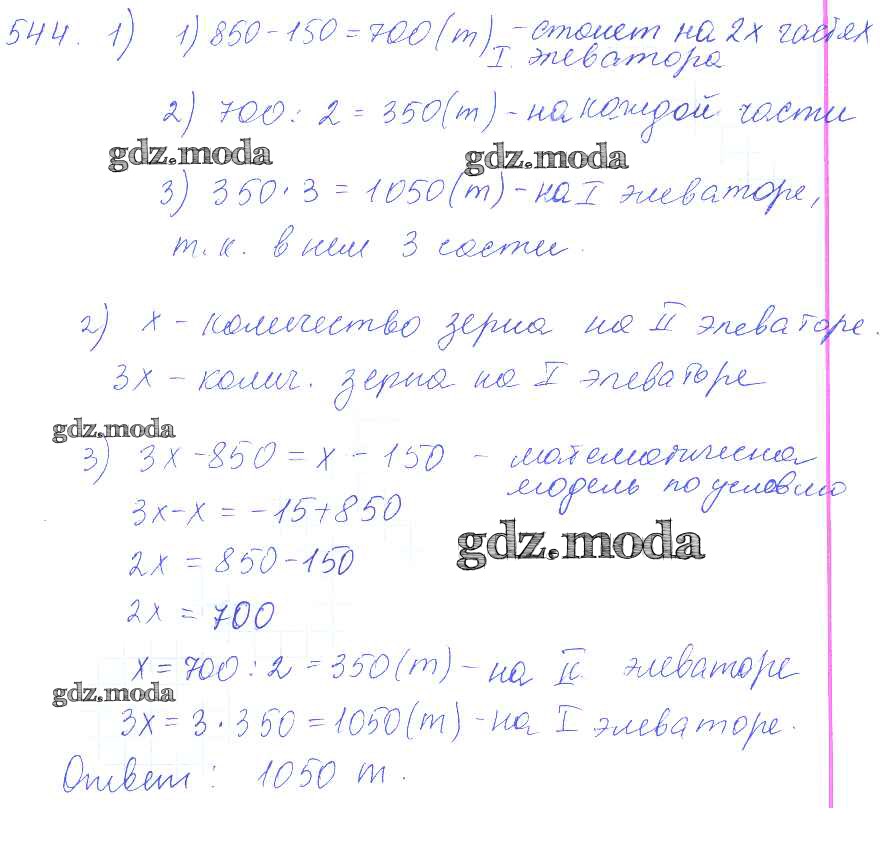 544. 1) 1) 850 - 150 = 700 (т) - станет на 2х частях
I. элеватора
2) 700 : 2 = 350 (т) - на каждой части
gdz.moda gdz.moda
3) 350 · 3 = 1050 (т) - на I элеваторе,
т.к. в нем 3 части.
2) x - количество зерна на II элеваторе.
3x - колич. зерна на I элеваторе
gdz.moda
3) 3x - 850 = x - 150 - математическая
модель по условию
3x - x = -15 + 850
gdz.moda
2x = 850 - 150
2x = 700
x = 700 : 2 = 350 (т) - на II элеваторе
gdz.moda
3x = 3 · 350 = 1050 (т) - на I элеваторе.
Ответ: 1050 т.